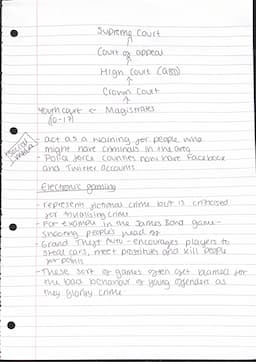 Supreme Court
Court of appeal
High Court
Crown Court
Youth court ← Magistrates
(10-17)
social media
- act as a warning for people who
might have criminals in the area
- Police force counties now have Facebook
and Twitter accounts
Electronic gaming
- represents fictional crime but is criticised
for trivialising crime
- For example in the James Bond game-
shooting peoples head off
- Grand Theft Auto - encourages players to
steal cars, meet prostitutes and kill people
for points
- These sort of games often get blamed for
the bad behaviour of young offenders as
they glorify crime